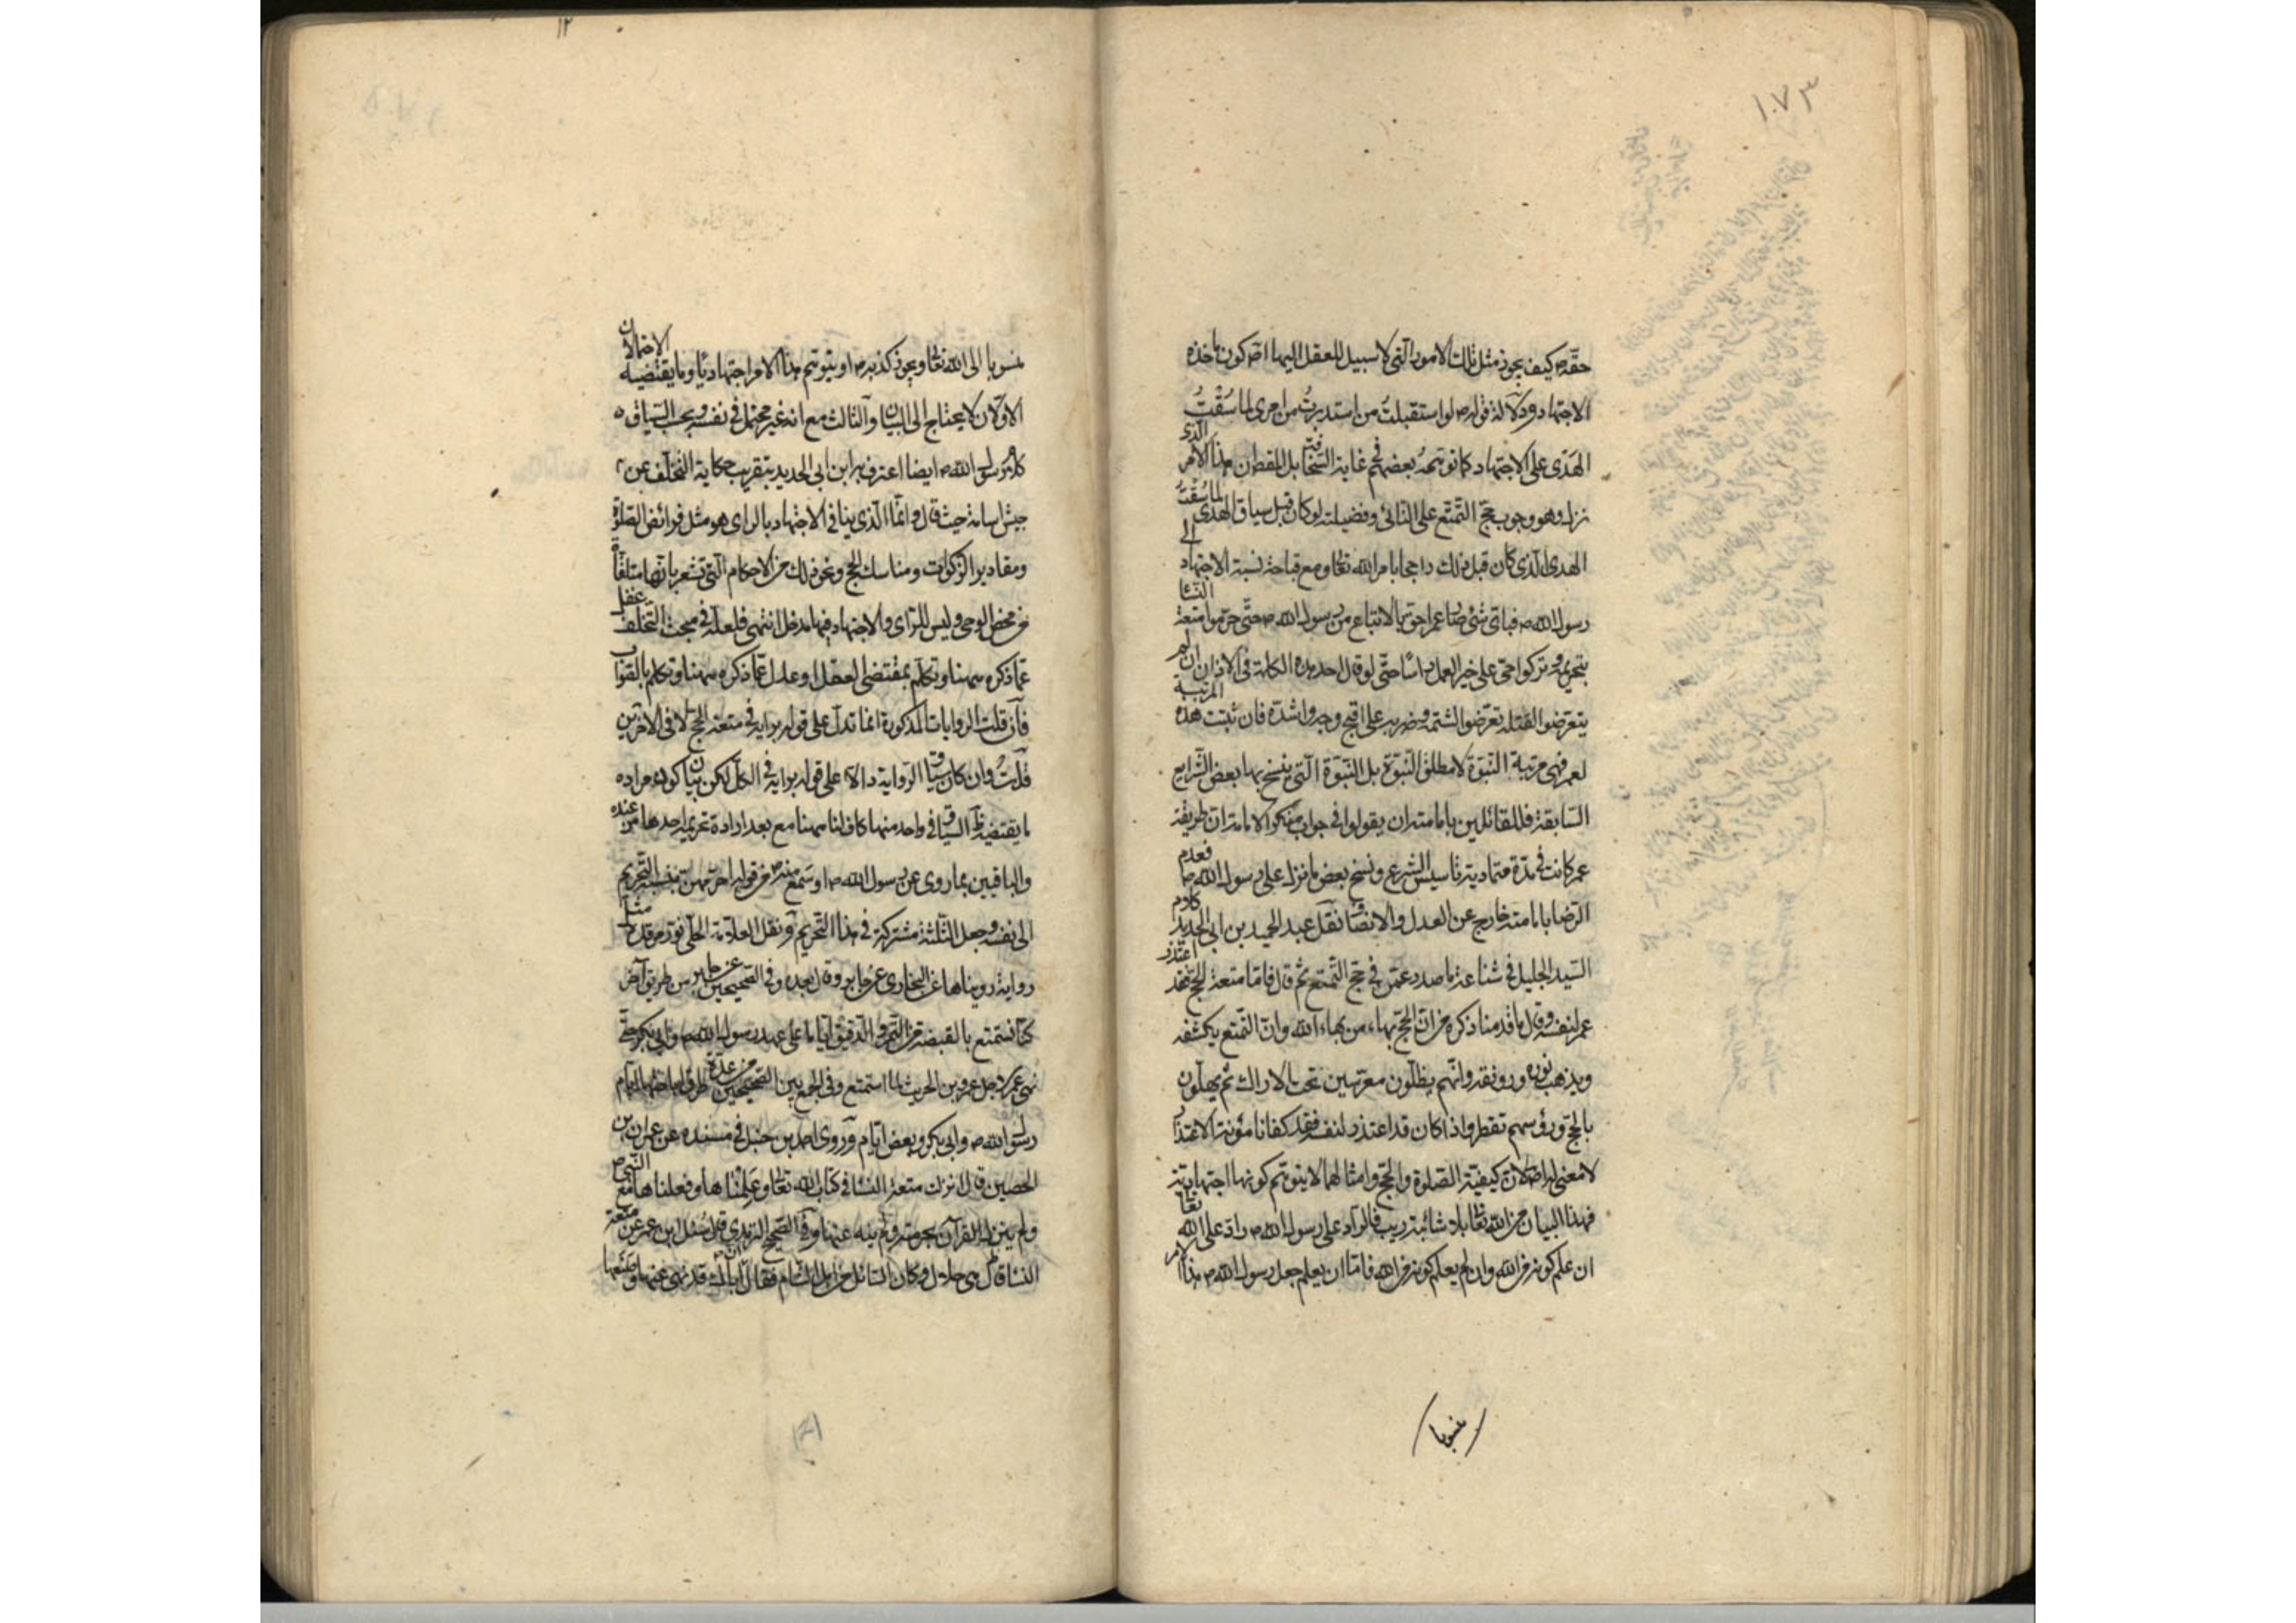 ١٠٧٣
حقّه ص كيف يجوز مثل تلك الامور التي لا سبيل للعقل اليها اصـ كون مأخذه
الاجتهاد ودلالة قوله ص لو استقبلتُ من امرى ما استدبرتُ لما سُقْتُ
الهَدْى على الاجتهاد كما توهمهُ بعضهم في غاية السخافة بل المقط ان هذا الامر الذى
نزل وهو وجوب حجّ التمتّع على النائى وفضيلته لو كان قبل سياق الهدى لما سُقْتُ
الهدى الذى كان قبل ذلك راجحا بامر الله تعالى ومع قباحة نسبة الاجتهاد الى
رسول الله ص فباىّ شئ صار عمر احق بالاتباع من رسول الله ص حتّى حرّموا متعة النسا
بتحريمه وتركوا حىّ على خير العمل راسًا حتّى لو قال احد هذه الكلمة في الاذان ان لم
يتعرّضوا لقتله تعرّضوا لشتمه وضربه على اقبح وجه واشدّه فان ثبتت هذه المرتبة
لعمر فهى مرتبة النبوّة لا مطلق النبوّة بل النبوّة التي ينسخ بها بعض الشرايع
السابقة فللقائلين بامامته ان يقولوا في جواب منكر الامامة ان طريقة
عمر كانت في مدّة متمادية تاسيس الشرع ونسخ بعض ما نزل على رسول الله ص فعدم
الرّضا بامامته خارج عن العدل والانصاف نقل عبد الحميد بن ابى الحديد كلام
السّيد الجليل في شناعة ما صدر عن عمر في حجّ التمتع ثم قال فامّا متعة الحجّ فقد اعتذر
عمر لنفسه وقال ما قدمنا ذكره من انّ الحجّ بهاء من بهاء الله وانّ التمتع يكشفه
ويذهب نوره ورونقه وانّهم يظلّون معرّسين تحت الاراك ثم يهلّون
بالحجّ ورؤسهم تقطر واذا كان قد اعتذر لنفسه فقد كفانا مؤنة الاعتذار
لا معنى له اصلا لان كيفيّة الصلوة والحجّ وامثالهما لا يتوهم كونها اجتهادية
فهذا البيان من الله تعالى بلا شائبة ريب فالرادّ على رسول الله ص رادّ على الله تعالى
ان علم كونه من الله وان لم يعلم كونه من الله فامّا ان يعلم جعل رسول الله ص هذا الامر
منسوبا
١٢
منسوبا الى الله تعالى ويجوز كذبه ص او يتوهم هذا الامر اجتهاديّا وما يقتضيه الاحتمالان
الاوّلان لا يحتاج الى البيان والثالث مع انه غير محتمل في نفسه وبحسب السّياق
كلام رسول الله ص ايضا اعترف به ابن ابى الحديد بتقريب حكاية التخلّف عن
جيش اسامة حيث قال وانّما الّذى ينافى الاجتهاد بالراى هو مثل فرائض الصلوة
ومقادير الزكوات ومناسك الحج ونحو ذلك من الاحكام التي تشعر بانها متلقّاة
من محض الوحى وليس للرّاى والاجتهاد فيها مدخل انتهى فلعلّه في مبحث التخلّف غفل
عمّا ذكره ههنا وتكلّم بمقتضى العقل او عدل عمّا ذكره ههنا وتكلم بالصواب
فان قلت الروايات المذكورة انما تدلّ على قوله برايه في متعة الحج لا في الاخرين
قلتُ وان كان سياق الرواية دالّا على قوله برايه في الكلّ لكن بيان كون مراده
ما يقتضيه السياق في واحد منها كاف لنا ههنا مع بعد ارادة تحريم احدها من عنده
والباقيين بما روى عن رسول الله ص او سمع منه ص من قوله احرّمهن بنسبة التحريم
الى نفسه وجعل الثلثة مشتركة في هذا التحريم ونقل العلّامة الحلّى نوّر مرقده مثل
رواية رويناها عن البخارى عن جابر وقال بعده وفي الصحيحين عن جابر من طريق آخر
كنّا نستمتع بالقبضة من التمر والدقيق ايّاما على عهد رسول الله ص وابى بكر حتّى
نهى عمر لاجل عمرو بن الحريث لما استمتع وفي الجمع بين الصحيحين من عدّة طرق اباحتها ايّام
رسول الله ص وابى بكر وبعض ايّام وروى احمد بن حنبل في مسنده عن عمران بن
الحصين قال نزلت متعة النسا في كتاب الله تعالى وعَلِمْناها وفعلناها مع النّبى ص
ولم ينزل القرآن بحرمته ولم ينه عنها وفي الصحيح الترمذى قال سُئل ابن عمر عن متعة
النسا قال هى حلال وكان السائل من اهل الشام فقال انّ اباك قد نهى عنها وصنعها